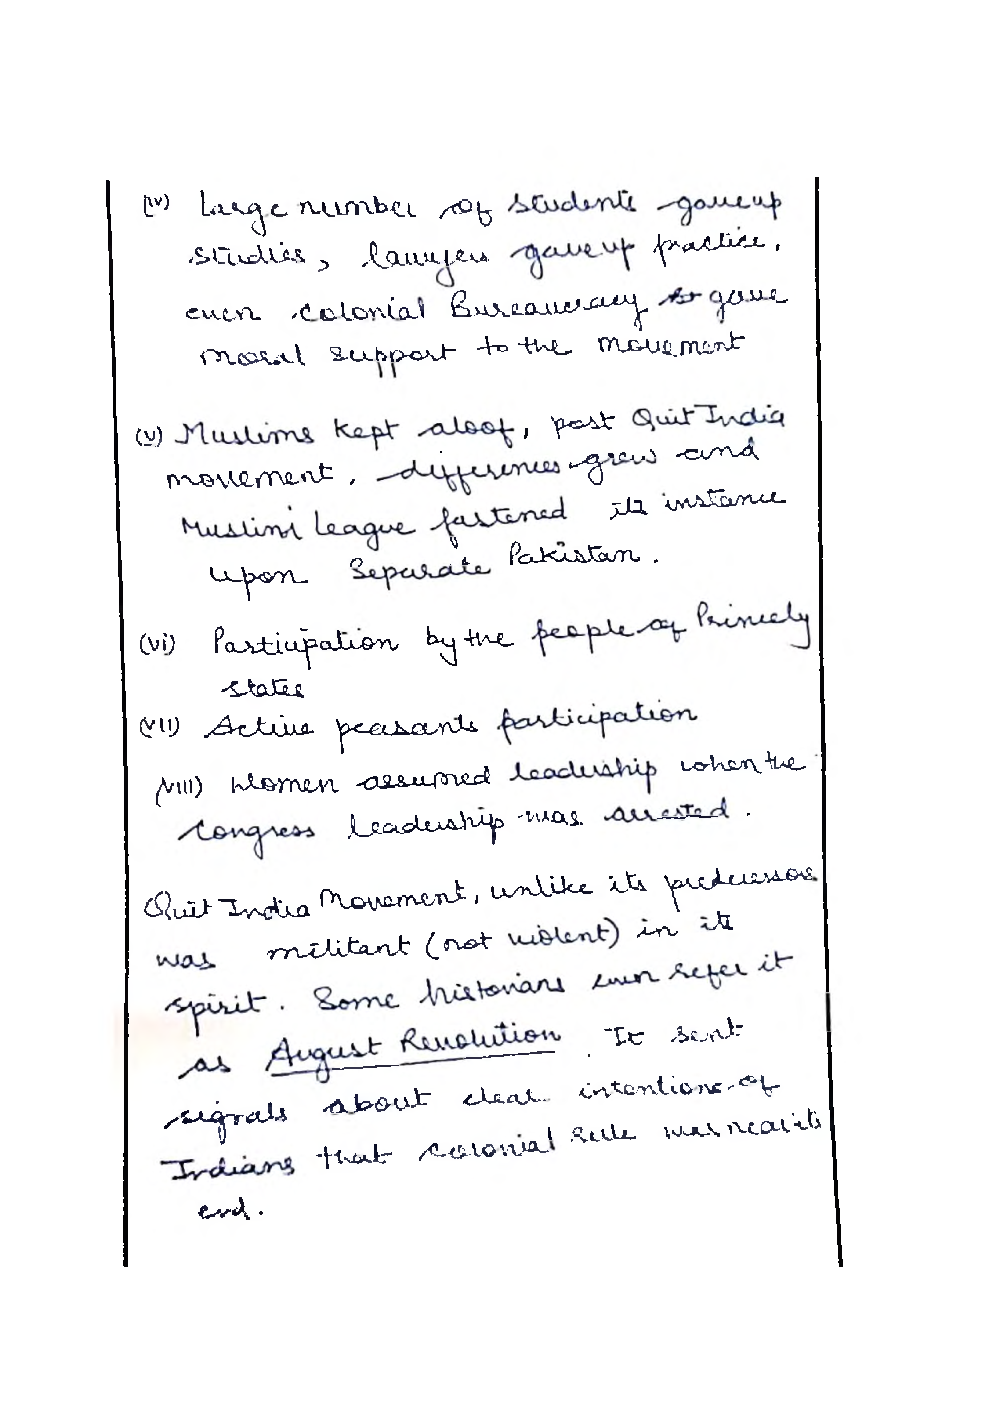 (iv) Large number of students gave up
studies, lawyers gave up practice,
even colonial Bureaucracy gave
moral support to the movement
(v) Muslims kept aloof, post Quit India
movement, differences grew and
Muslim League fastened its instance
upon Separate Pakistan.
(vi) Participation by the people of Princely
states
(vii) Active peasants participation
(viii) Women assumed leadership when the
Congress leadership was arrested.
Quit India Movement, unlike its predecessors
was militant (not violent) in its
spirit. Some historians even refer it
as August Revolution. It sent
signals about clear intentions of
Indians that colonial rule was near its
end.